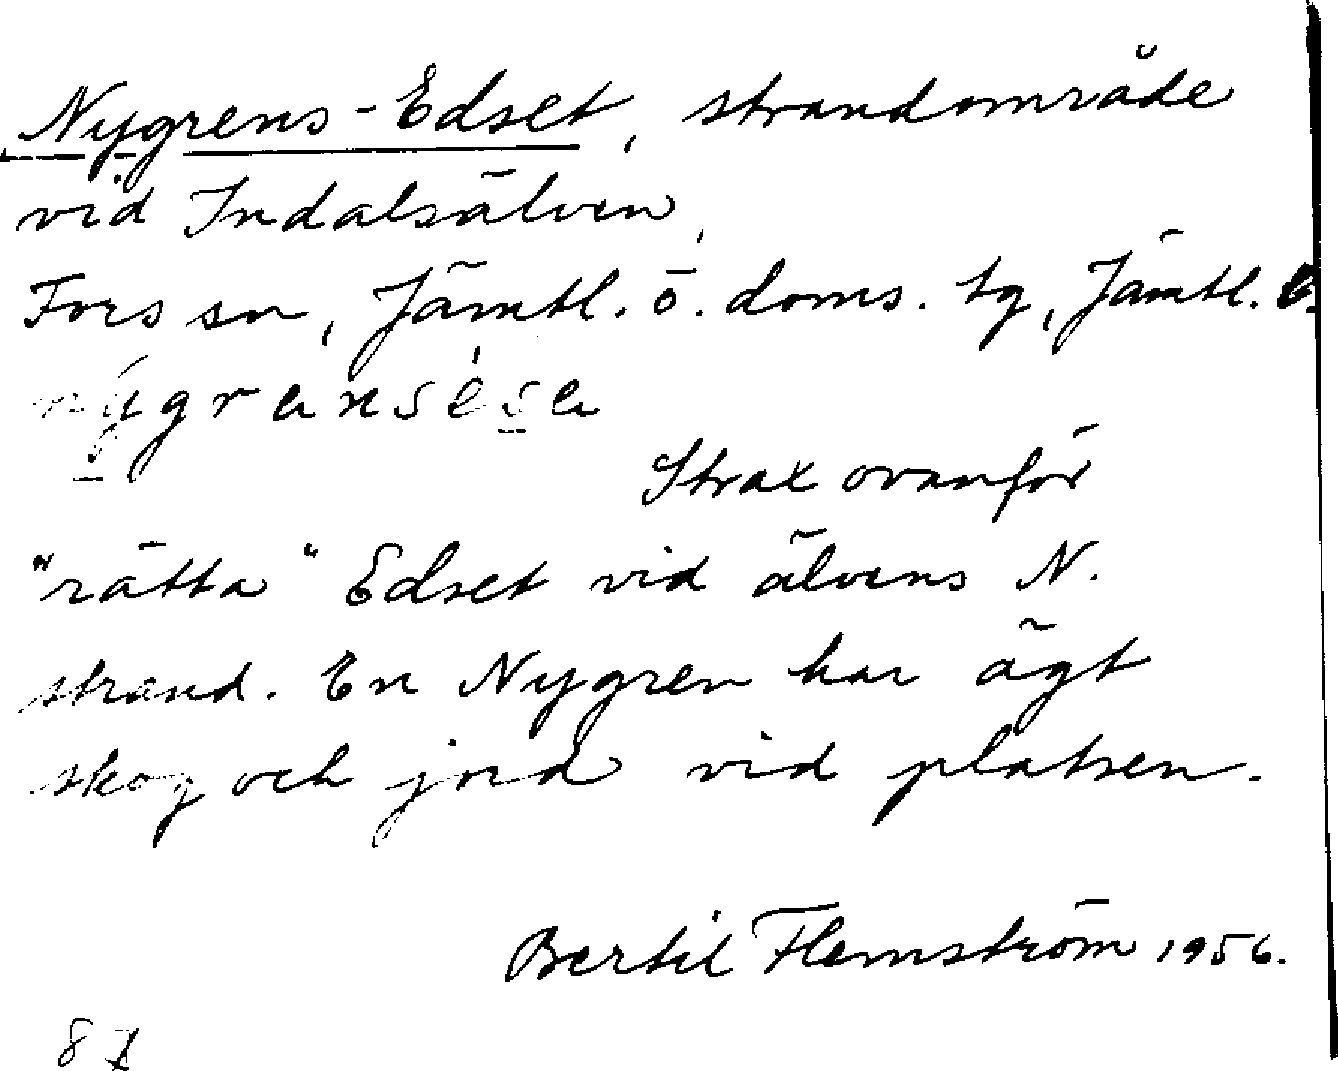 Nygrens-Edset, strandområde
vid Indalsälven,
Fors sn, Jämtl. ö. doms. tg, Jämtl. l.
nygrensésa
Strax ovanför
"rätta" Edset vid älvens N.
strand. En Nygren har ägt
skog och jord vid platsen.
Bertil Flemström 1956.